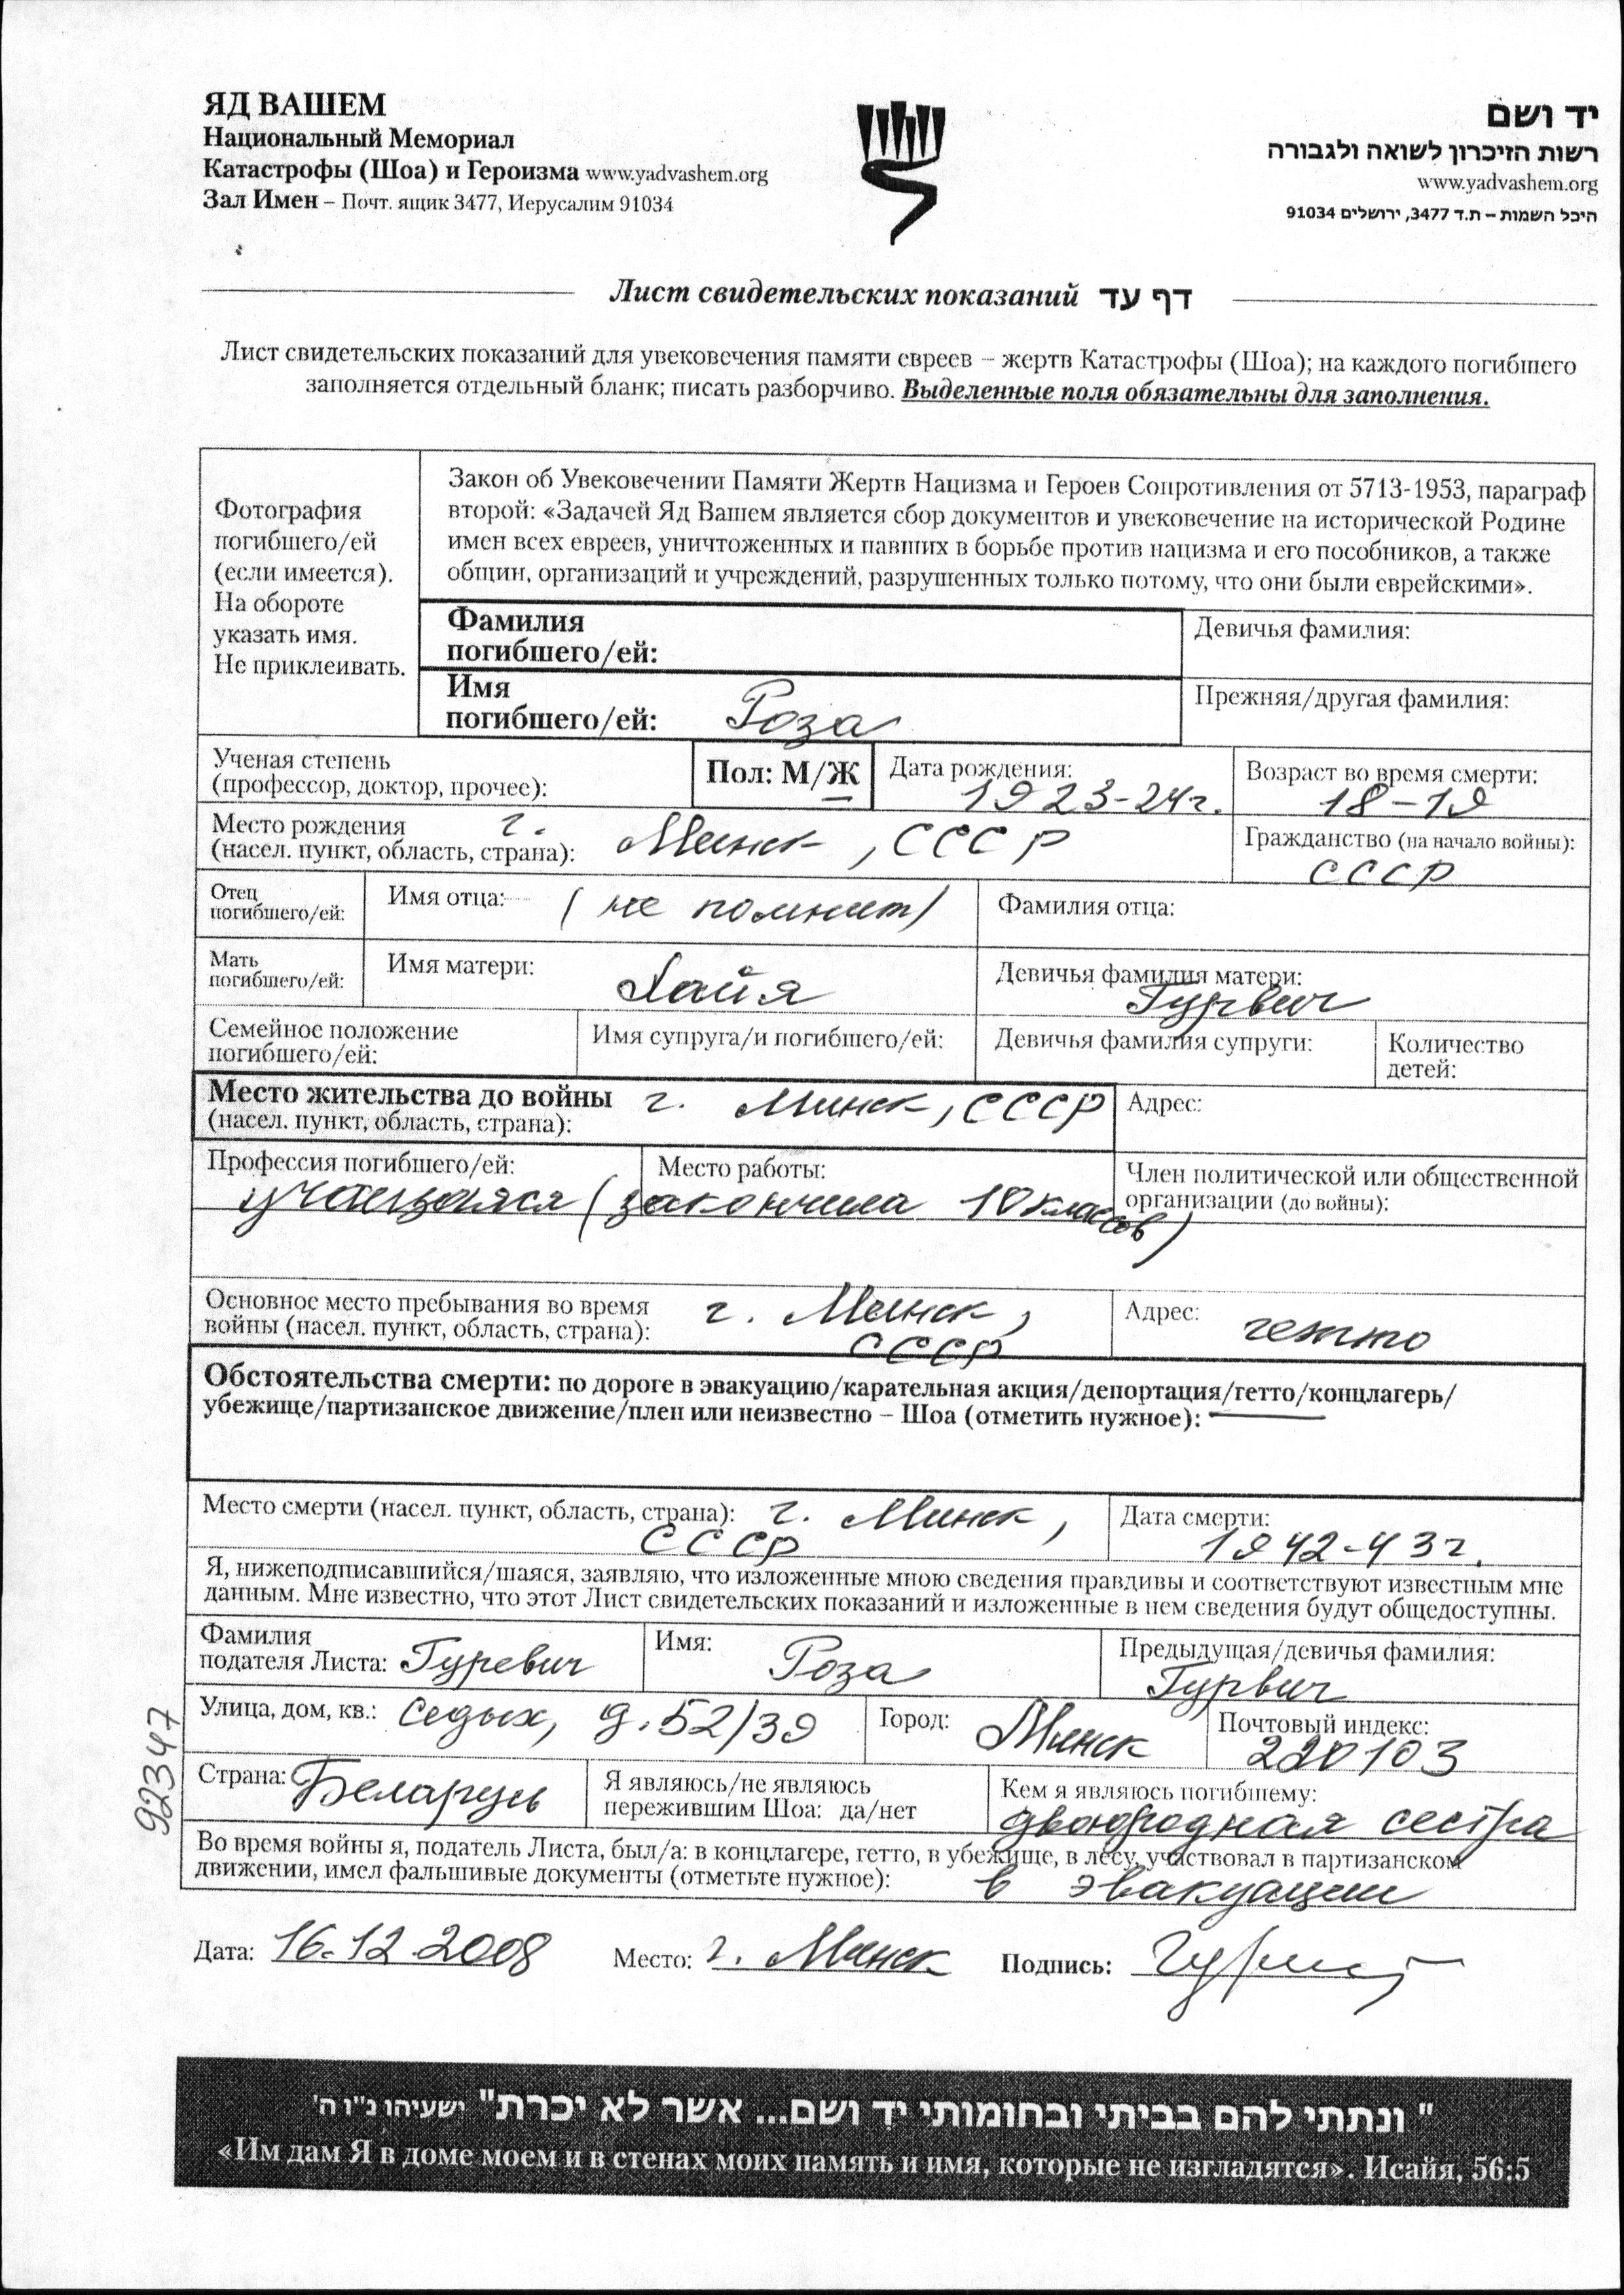 ЯД ВАШЕМ
Национальный Мемориал
Катастрофы (Шоа) и Героизма www.yadvashem.org
Зал Имен – Почт. ящик 3477, Иерусалим 91034
יד ושם
רשות הזיכרון לשואה ולגבורה
www.yadvashem.org
היכל השמות – ת.ד 3477, ירושלים 91034
Лист свидетельских показаний דף עד
Лист свидетельских показаний для увековечения памяти евреев – жертв Катастрофы (Шоа); на каждого погибшего
заполняется отдельный бланк; писать разборчиво. Выделенные поля обязательны для заполнения.
Фотография
погибшего/ей
(если имеется).
На обороте
указать имя.
Не приклеивать.
Закон об Увековечении Памяти Жертв Нацизма и Героев Сопротивления от 5713-1953, параграф
второй: «Задачей Яд Вашем является сбор документов и увековечение на исторической Родине
имен всех евреев, уничтоженных и павших в борьбе против нацизма и его пособников, а также
общин, организаций и учреждений, разрушенных только потому, что они были еврейскими».
Фамилия
погибшего/ей:
Девичья фамилия:
Имя
погибшего/ей: Роза
Прежняя/другая фамилия:
Ученая степень
(профессор, доктор, прочее):
Пол: М/Ж
Дата рождения:
1923-24г.
Возраст во время смерти:
18-19
Место рождения
(насел. пункт, область, страна): г. Минск, СССР
Гражданство (на начало войны):
СССР
Отец
погибшего/ей:
Имя отца: (не помнит)
Фамилия отца:
Мать
погибшего/ей:
Имя матери: Хайя
Девичья фамилия матери:
Гурвич
Семейное положение
погибшего/ей:
Имя супруга/и погибшего/ей:
Девичья фамилия супруги:
Количество
детей:
Место жительства до войны г. Минск, СССР
(насел. пункт, область, страна):
Адрес:
Профессия погибшего/ей:
Место работы:
Член политической или общественной
организации (до войны):
учащаяся (закончила 10 классов)
Основное место пребывания во время
войны (насел. пункт, область, страна): г. Минск,
СССР
Адрес: гетто
Обстоятельства смерти: по дороге в эвакуацию/карательная акция/депортация/гетто/концлагерь/
убежище/партизанское движение/плен или неизвестно – Шоа (отметить нужное): —
Место смерти (насел. пункт, область, страна): г. Минск,
СССР
Дата смерти:
1942-43г.
Я, нижеподписавшийся/шаяся, заявляю, что изложенные мною сведения правдивы и соответствуют известным мне
данным. Мне известно, что этот Лист свидетельских показаний и изложенные в нем сведения будут общедоступны.
Фамилия
подателя Листа: Гуревич
Имя: Роза
Предыдущая/девичья фамилия:
Гурвич
Улица, дом, кв.: Седых, д. 52/39
Город: Минск
Почтовый индекс:
220103
Страна: Беларусь
Я являюсь/не являюсь
пережившим Шоа: да/нет
Кем я являюсь погибшему:
двоюродная сестра
Во время войны я, податель Листа, был/а: в концлагере, гетто, в убежище, в лесу, участвовал в партизанском
движении, имел фальшивые документы (отметьте нужное): в эвакуации
92347
Дата: 16.12.2008 Место: г. Минск Подпись:
" ונתתי להם בביתי ובחומותי יד ושם... אשר לא יכרת" ישעיהו נ"ו ה'
«Им дам Я в доме моем и в стенах моих память и имя, которые не изгладятся». Исайя, 56:5